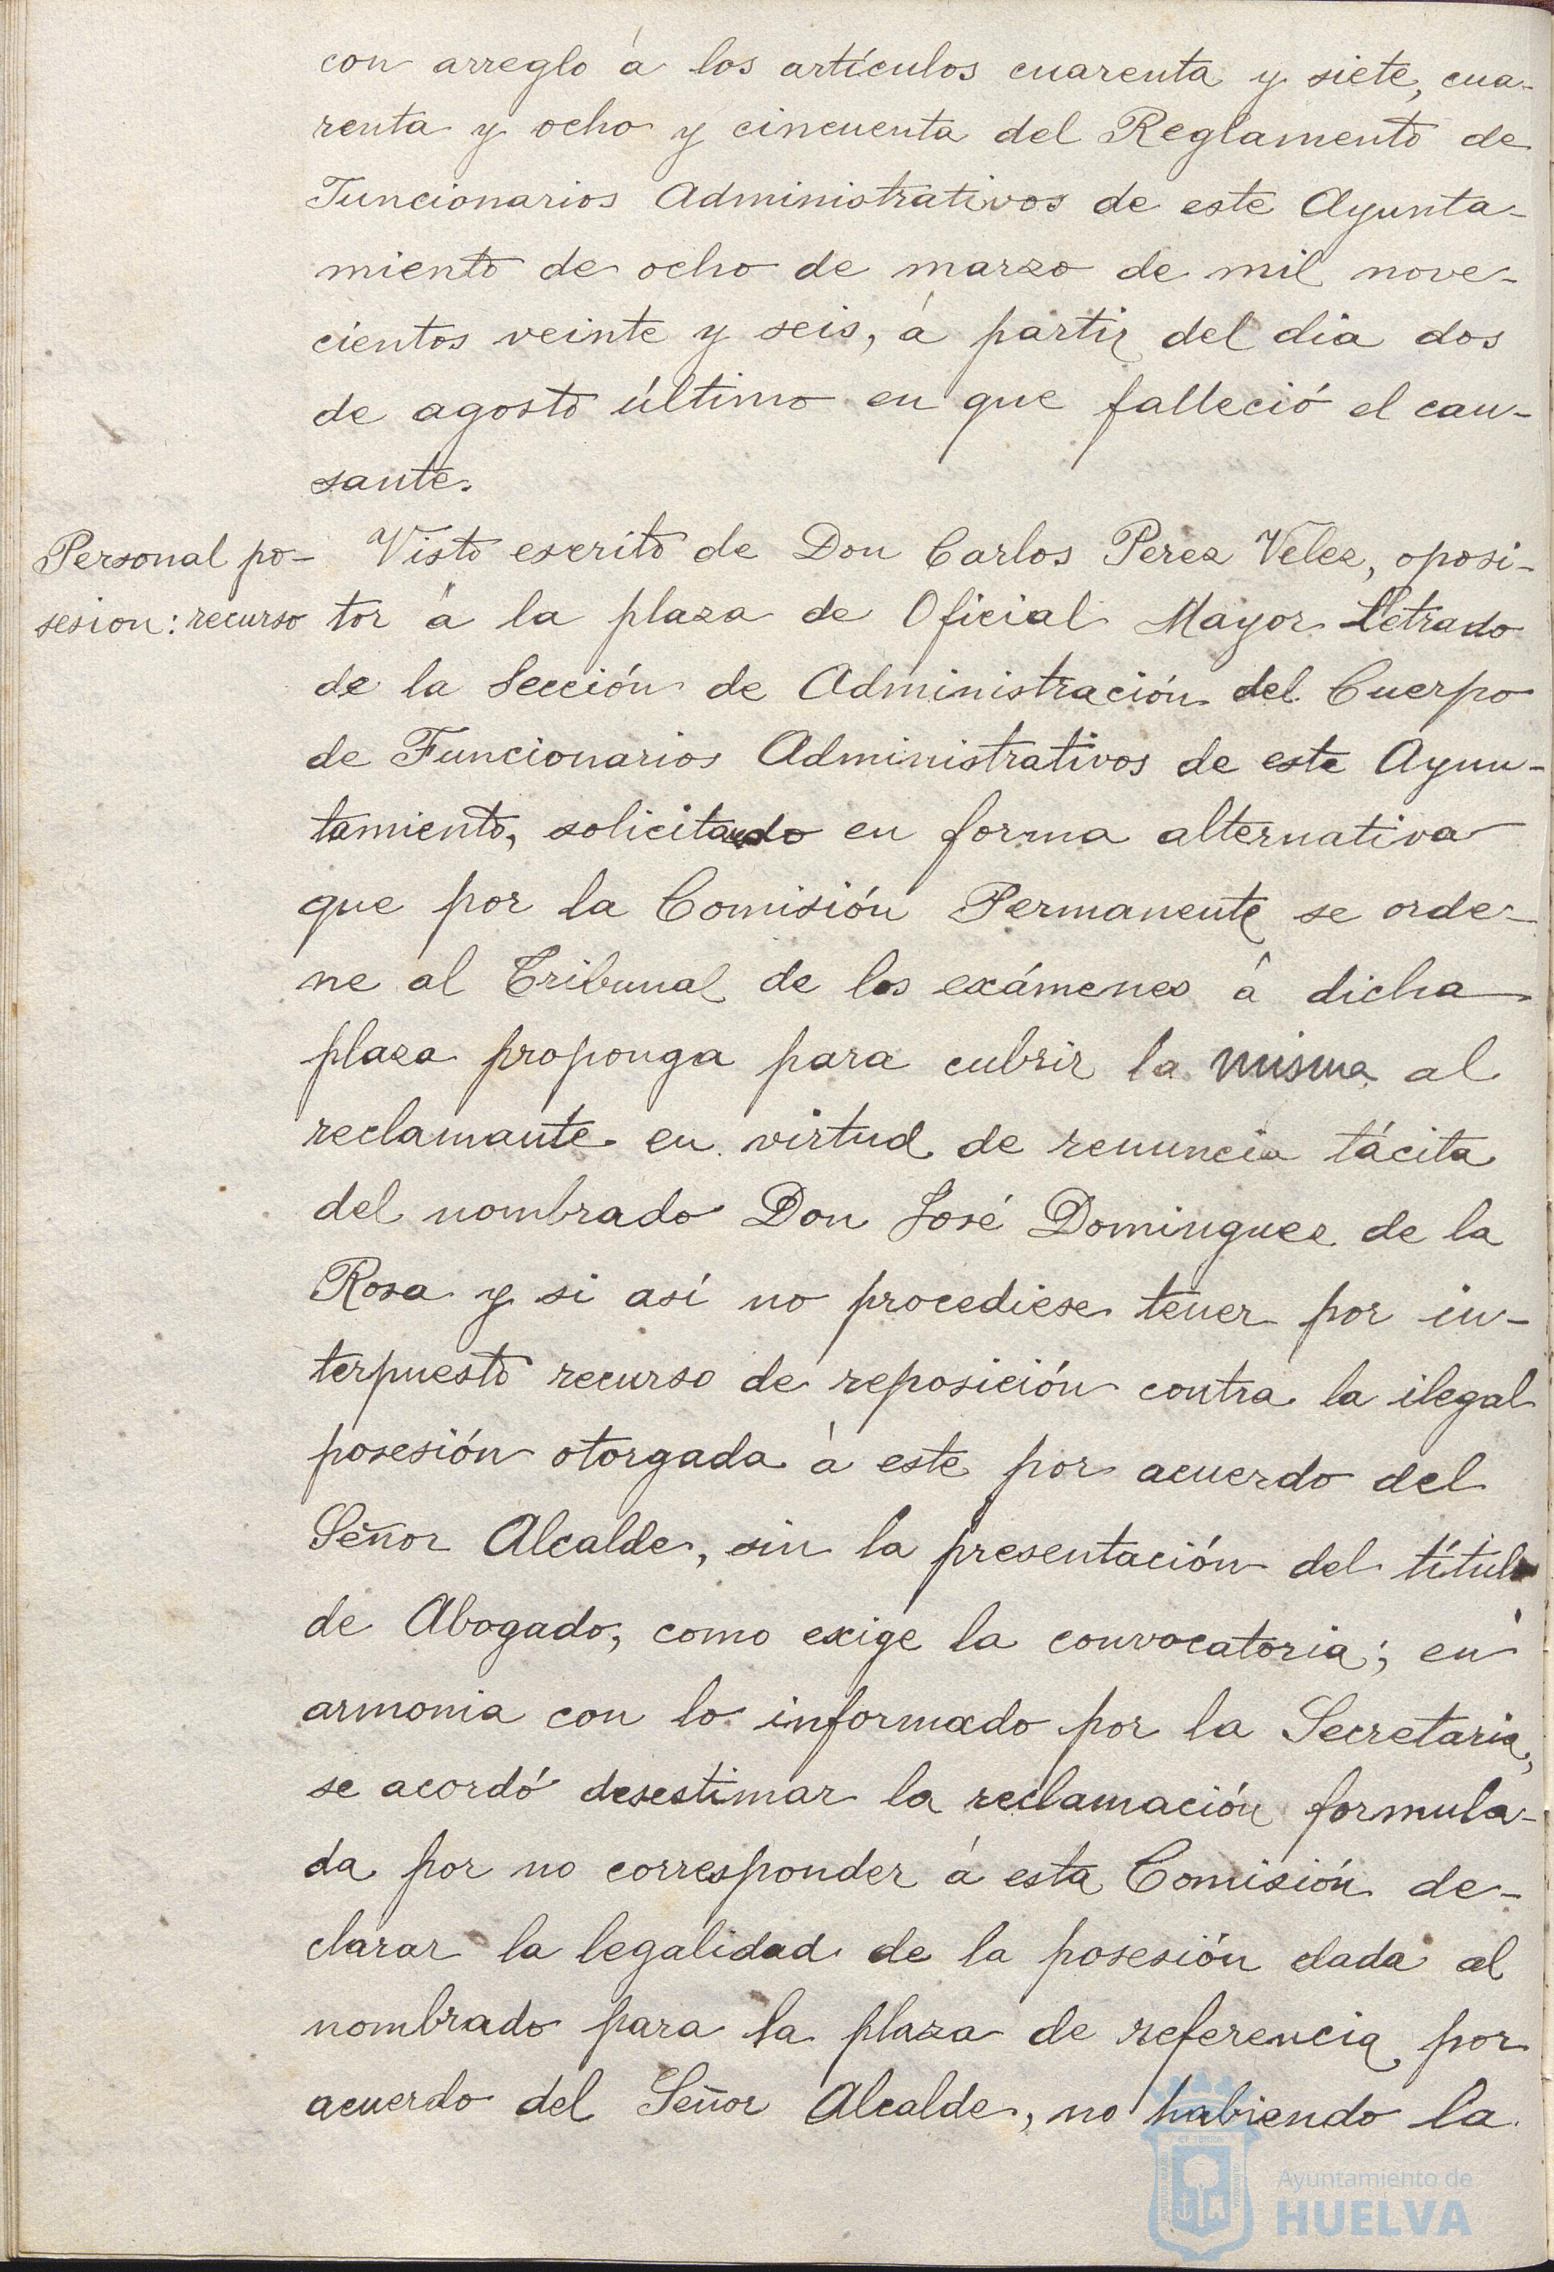 con arreglo á los artículos cuarenta y siete, cua-
renta y ocho y cincuenta del Reglamento de
Funcionarios Administrativos de este Ayunta-
miento de ocho de marzo de mil nove-
cientos veinte y seis, á partir del dia dos
de agosto último en que falleció el cau-
sante.
Personal po-
sesion: recurso
Visto escrito de Don Carlos Perez Velez, oposi-
tor á la plaza de Oficial Mayor Letrado
de la Sección de Administración del Cuerpo
de Funcionarios Administrativos de este Ayun-
tamiento, solicitando en forma alternativa
que por la Comisión Permanente se orde-
ne al Tribunal de los exámenes á dicha
plaza proponga para cubrir la misma al
reclamante en virtud de renuncia tácita
del nombrado Don José Dominguez de la
Rosa y si así no procediese tener por in-
terpuesto recurso de reposición contra la ilegal
posesión otorgada á este por acuerdo del
Señor Alcalde, sin la presentación del título
de Abogado, como exige la convocatoria; en
armonia con lo informado por la Secretaria,
se acordó desestimar la reclamación formula-
da por no corresponder á esta Comisión de-
clarar la legalidad de la posesión dada al
nombrado para la plaza de referencia por
acuerdo del Señor Alcalde, no habiendo la
Ayuntamiento de
HUELVA